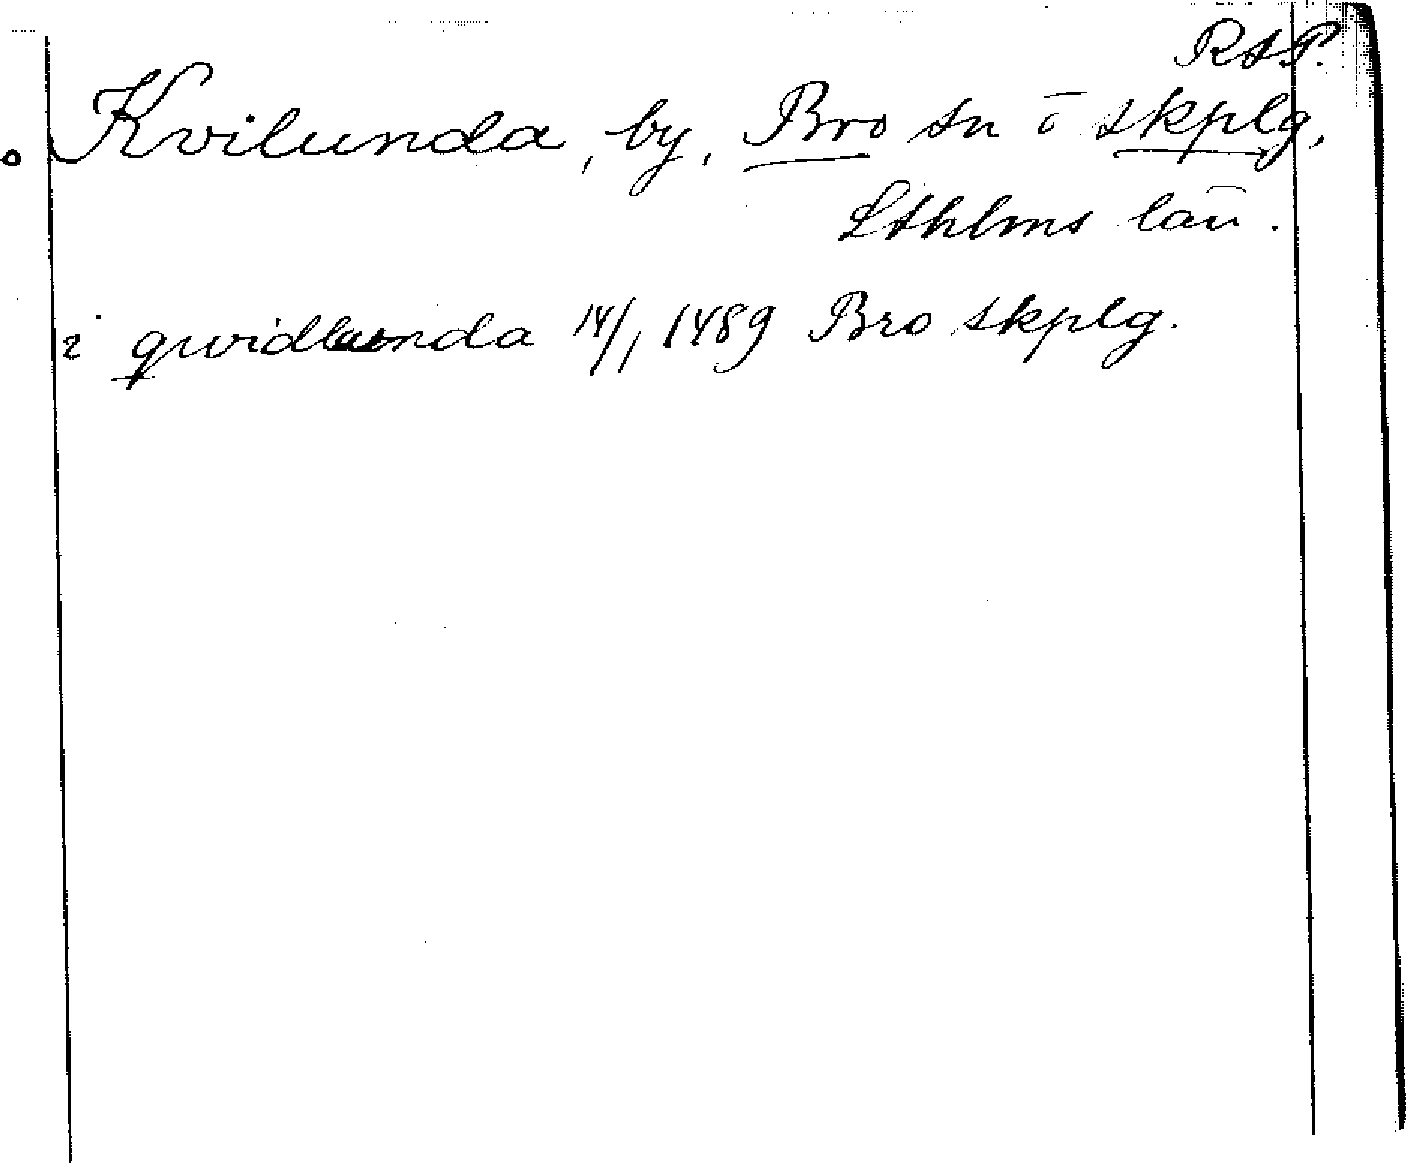 RAP.
Kvilunda, by, Bro sn o skplg,
Sthlms län.
i qwidlunda 14/1 1489 Bro skplg.